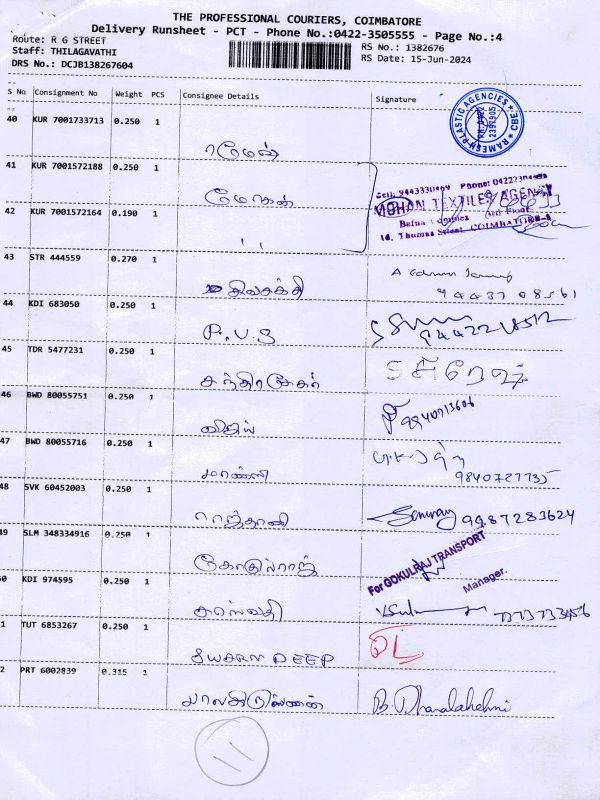 THE PROFESSIONAL COURIERS, COIMBATORE
Delivery Runsheet - PCT - Phone No.:0422-3505555 - Page No.:4
Route: R G STREET
Staff: THILAGAVATHI
DRS No.: DCJB138267604
RS No.: 1382676
RS Date: 15-Jun-2024
S No Consignment No Weight PCS Consignee Details Signature
40 KUR 7001733713 0.250 1
ரமேஸ்
RAMESH PLASTIC AGENCIES CBE
41 KUR 7001572188 0.250 1
மோகன்
MOHAN TEXTILES AGENCY
42 KUR 7001572164 0.190 1
" "
43 STR 444559 0.270 1
சிவசக்தி
44 KDI 683050 0.250 1
P.V.S
45 TDR 5477231 0.250 1
சந்திரசேகர்
46 BWD 80055751 0.250 1
விஜய்
47 BWD 80055716 0.250 1
9840727735
48 SVK 60452003 0.250 1
9987283624
49 SLM 348334916 0.250 1
கோகுல்ராஜ்
For GOKULRAJ TRANSPORT
Manager.
0 KDI 974595 0.250 1
சரஸ்வதி
1 TUT 6853267 0.250 1
SWARN DEEP
2 PRT 6002839 0.315 1
பாலகிருஸ்ணன்
B. Dhanalakshmi
11